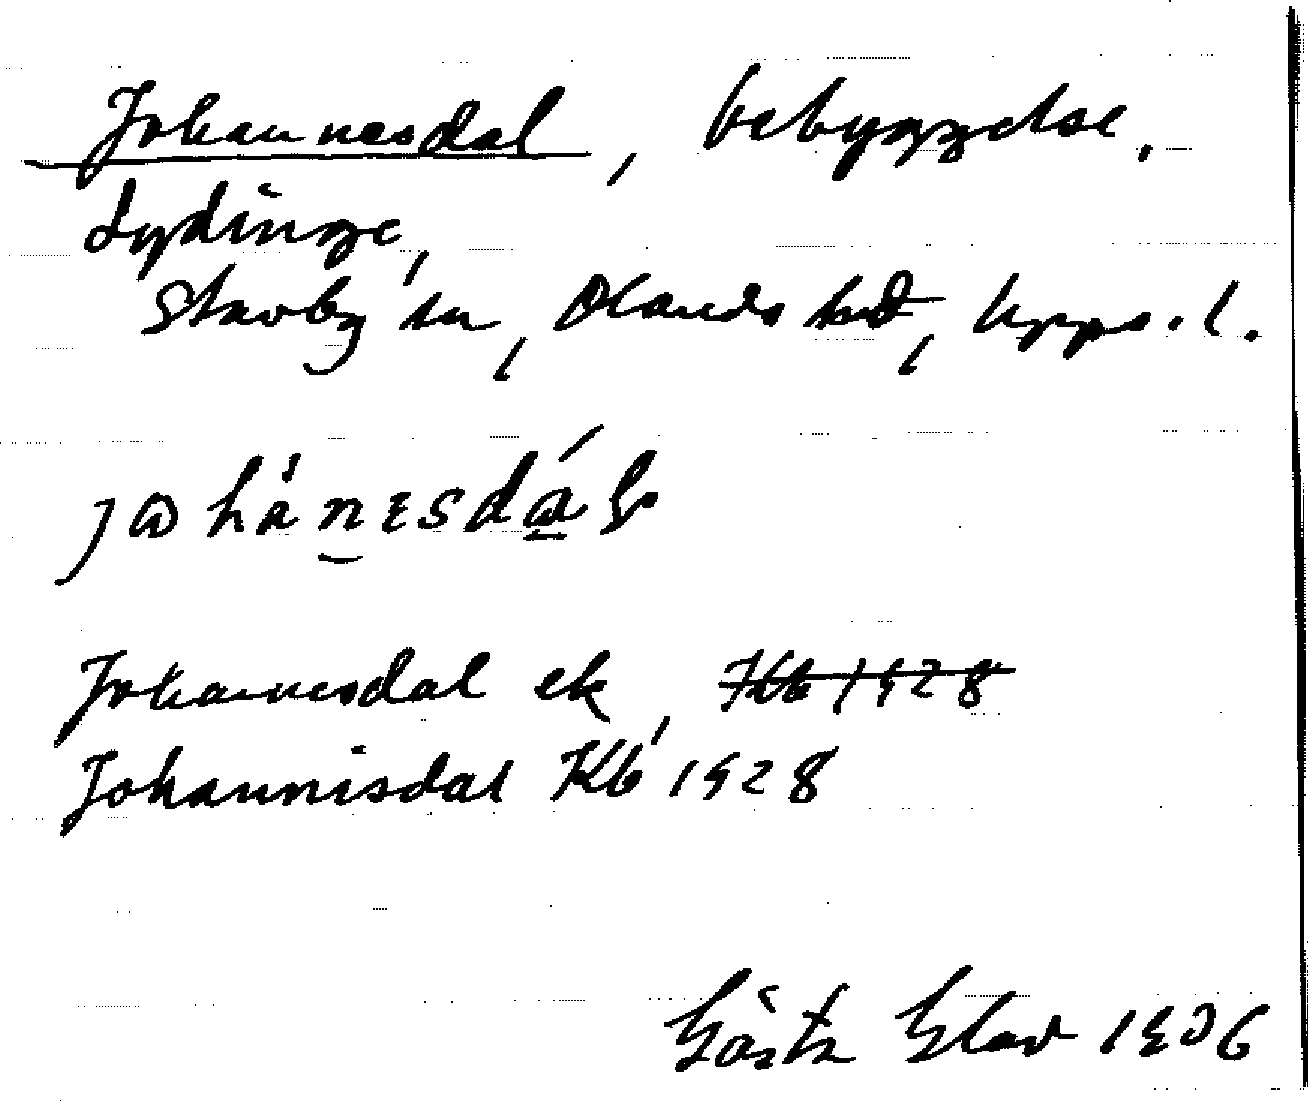 Johannesdal, bebyggelse.
Lydinge,
Stavby sn, Olands hd, Upps. l.
Johannesdal ek, Kb 1928
Johannisdal Kb 1928
Gösta 1936